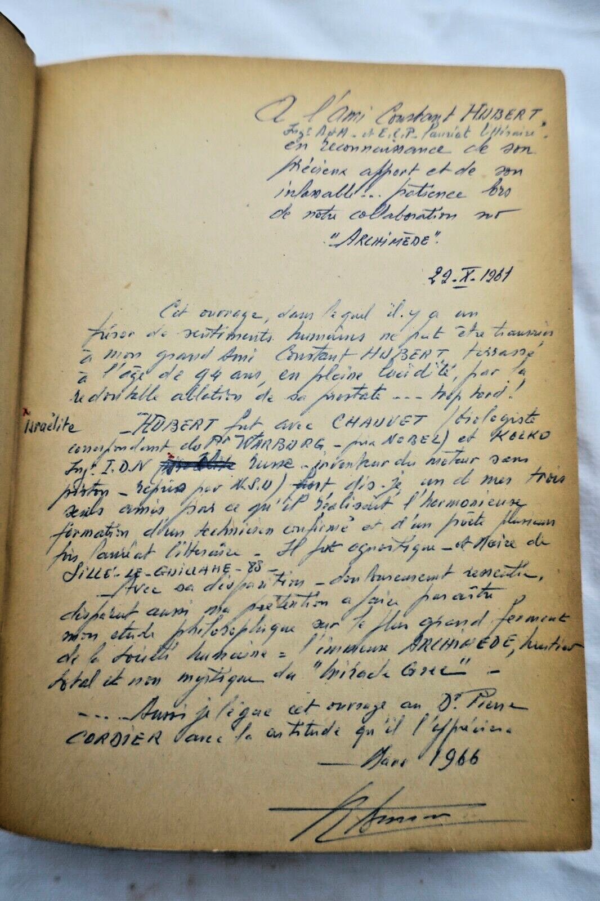 A l'Ami Constant HUBERT.
Ing. A&M - et E.C.P. lauréat littéraire.
en reconnaissance de son
précieux apport et de son
patience lors
de notre collaboration sur
"ARCHIMÈDE".
22-X-1961
Cet ouvrage, dans lequel il y a un
trésor de sentiments humains ne put être
à mon grand Ami Constant HUBERT, terrassé
à l'âge de 94 ans, en pleine lucidité, par la
redoutable ablation de sa prostate --- trop tard !
Israélite
- HUBERT fut avec CHAUVET (biologiste
correspondant du Pr WARBURG - prix NOBEL) et
Ing. I.D.N russe - inventeur du moteur sans
piston - repris par N.S.U) dis-je un de mes trois
seuls amis parce qu'il réalisait l'harmonieuse
formation d'un technicien confirmé et d'un poète plusieurs
fois lauréat littéraire - Il fut agnostique - et Maire de
SILLÉ-LE-GUILLAUME -
- Avec sa disparition - douloureusement ressentie,
disparut aussi ma prétention a faire paraître
mon étude philosophique sur le plus grand ferment
de la Société humaine = l'immense ARCHIMÈDE,
total et non mystique du "Miracle Grec" -
---- Aussi je lègue cet ouvrage au Dr Pierre
CORDIER avec la certitude qu'il l'appréciera
- Mars 1966